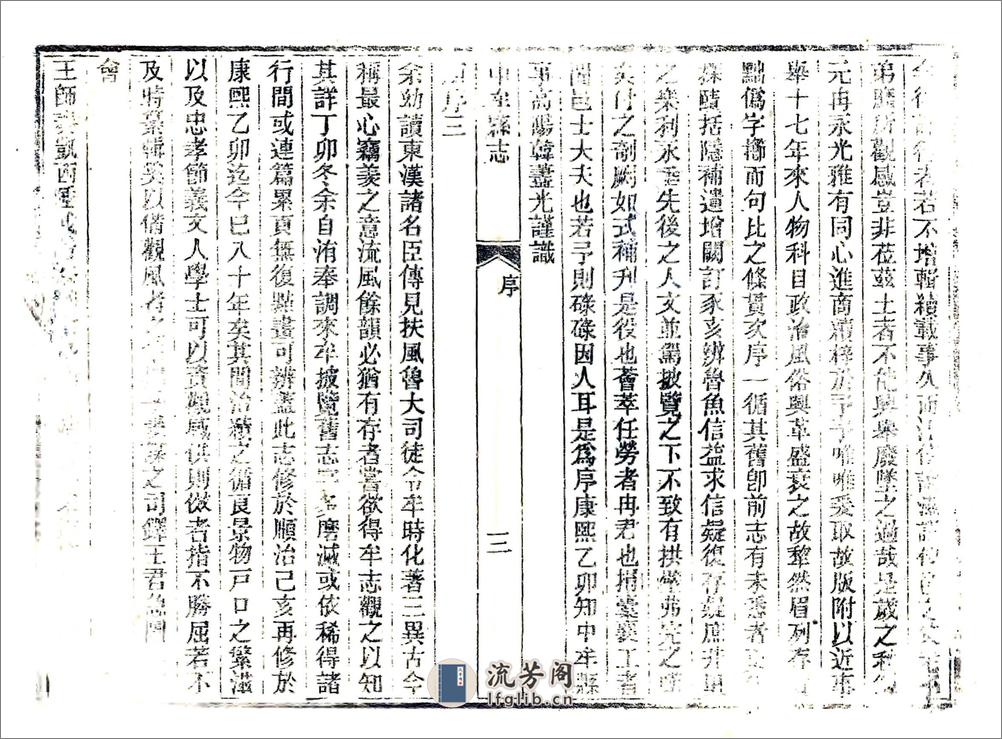 若不增輯續載事久而
觀感豈非莅茲土者不能興舉廢墜之過哉是歲之秋
元冉永光雅有同心進商續梓於予予唯唯爰取故版附以近事
舉十七年來人物科目政治風俗興革盛衰之故犂然眉列存
點僞字擲而句比之條貫次序一循其舊卽前志有未悉者
採賾括隱補遺增闕訂豕亥辨魯魚信益求信疑復存疑庶
之樂利永垂先後之人文並壽披覽之下不致有拱
付之剞劂如式補刋是役也薈萃任勞者冉君也捐囊襄工者
邑士大夫也若予則碌碌因人耳是爲序康熙乙卯知中牟縣
事高陽韓藎光謹識
中牟縣志
序
三
序三
余幼讀東漢諸名臣傳見扶風魯大司徒令牟時化著三異古今
稱最心竊羨之意流風餘韻必猶有存者嘗欲得牟志觀之以知
其詳丁卯冬余自洧奉調來牟披覽舊志 多磨滅或依稀得諸
行間或連篇累頁無復點畫可辨蓋此志修於順治己亥再修於
康熙乙卯迄今已八十年矣其間治績之循良景物戶口之繁滋
以及忠孝節義文人學士可以資觀感供則傚者指不勝屈若不
及時纂輯奚以偹觀風者之 之司鐸王君
會
王師奏凱西陲
流芳阁
lfglib.cn